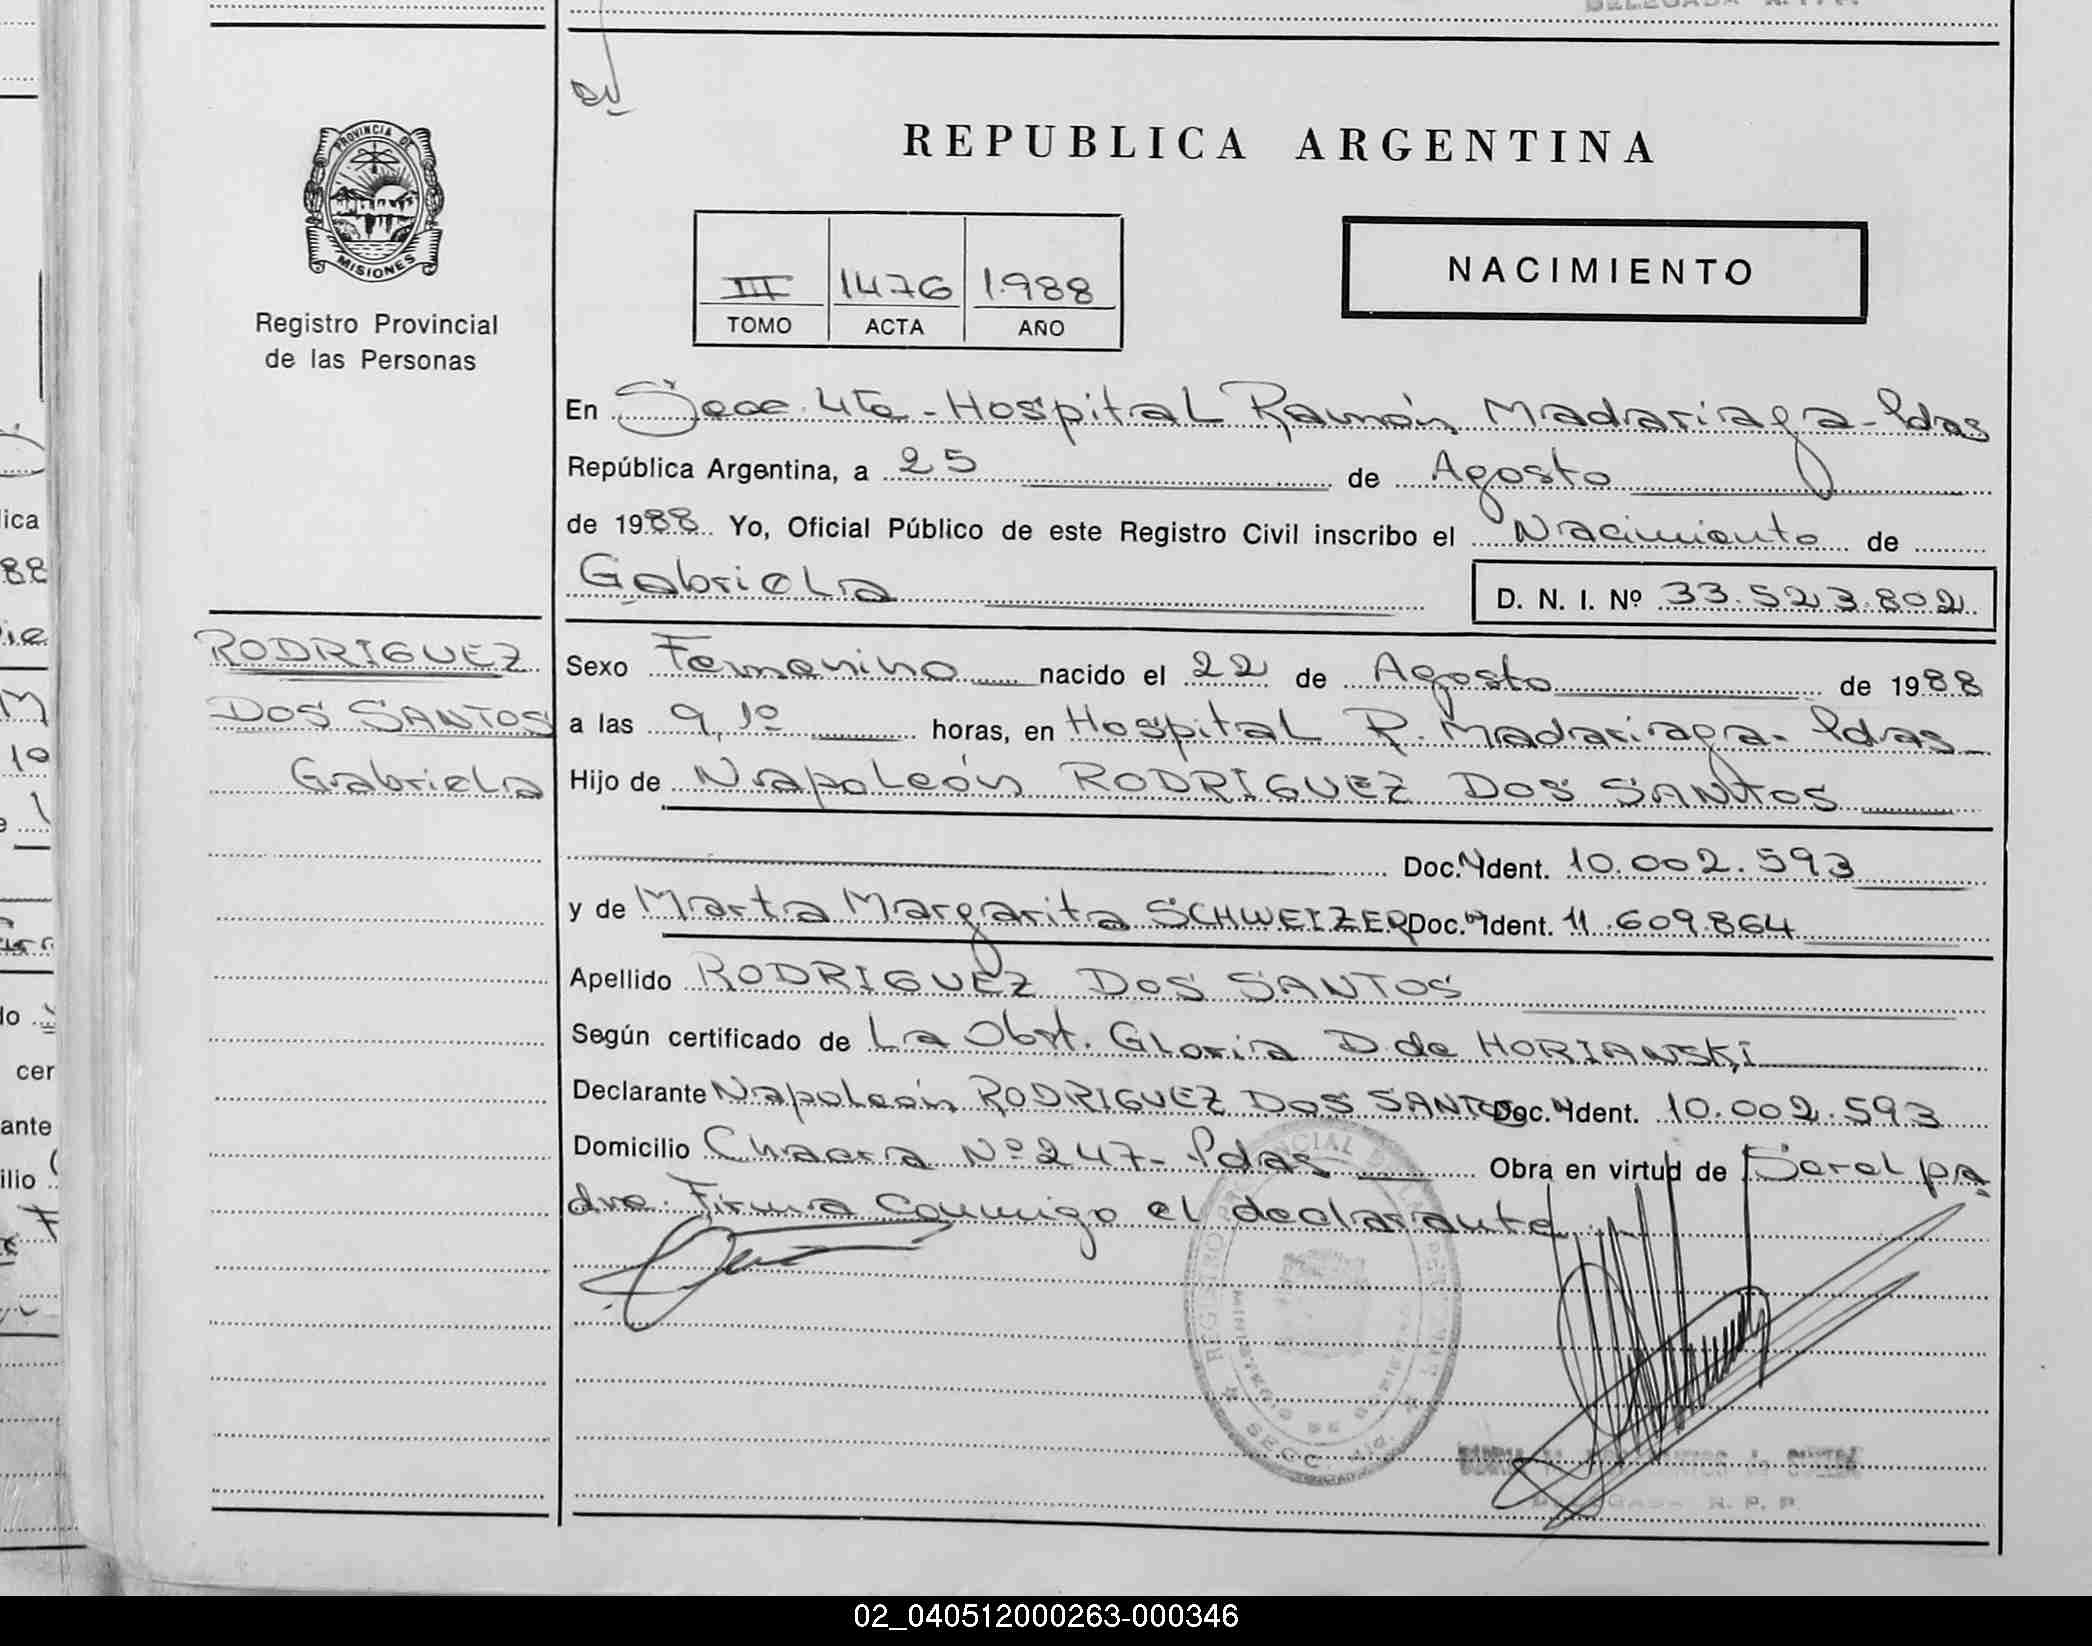 PROVINCIA DE
MISIONES
Registro Provincial
de las Personas
REPUBLICA ARGENTINA
III 1476 1.988
TOMO ACTA AÑO
NACIMIENTO
En Secc. 4ta - Hospital Ramón Madariaga - Pdas
República Argentina, a 25 de Agosto
de 1988 Yo, Oficial Público de este Registro Civil inscribo el Nacimiento de
Gabriela
D. N. I. Nº 33.523.802
RODRIGUEZ
DOS SANTOS
Gabriela
Sexo Femenino nacido el 22 de Agosto de 1988
a las 9,10 horas, en Hospital R. Madariaga - Pdas
Hijo de Napoleón RODRIGUEZ DOS SANTOS
Doc. Ident. 10.002.593
y de Marta Margarita SCHWEIZER Doc. Ident. 11.609.864
Apellido RODRIGUEZ DOS SANTOS
Según certificado de La Obst. Gloria D. de HORIANSKI
Declarante Napoleón RODRIGUEZ DOS SANTOS Doc. Ident. 10.002.593
Domicilio Chacra Nº 247 - Pdas Obra en virtud de Ser el pa
dre. Firma conmigo el declarante.
R. P. P.
02_040512000263-000346